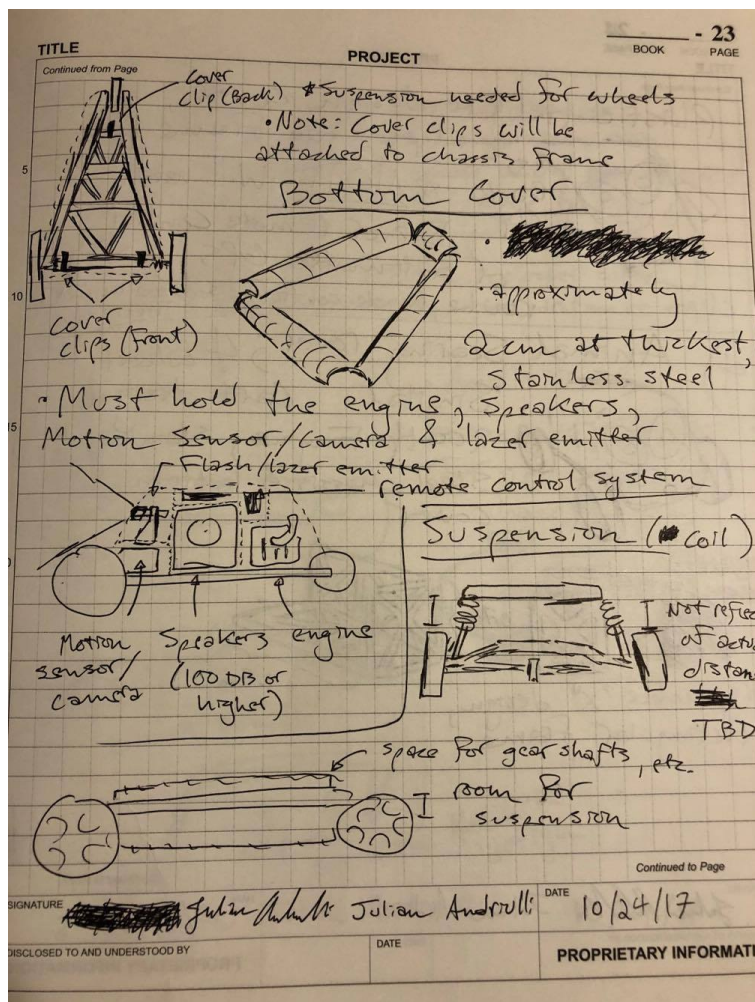 - 23
BOOK PAGE
TITLE
PROJECT
Continued from Page
cover
clip (Back)
*Suspension needed for wheels
• Note: Cover clips will be
attached to chassis frame
5
Bottom Cover
10
cover
clips (front)
• approximately
2cm at thickest,
Stainless steel
• Must hold the engine, speakers,
Motion Sensor/camera & lazer emitter
Flash/lazer emitter
remote control system
Motion
sensor/
camera
Speakers
(100 DB or
higher)
engine
Suspension (coil)
Not reflec
of actu
distan
TBD
space for gear shafts, etc.
room for
suspension
Continued to Page
SIGNATURE
Julian Andriulli
DATE
10/24/17
DISCLOSED TO AND UNDERSTOOD BY
DATE
PROPRIETARY INFORMATI